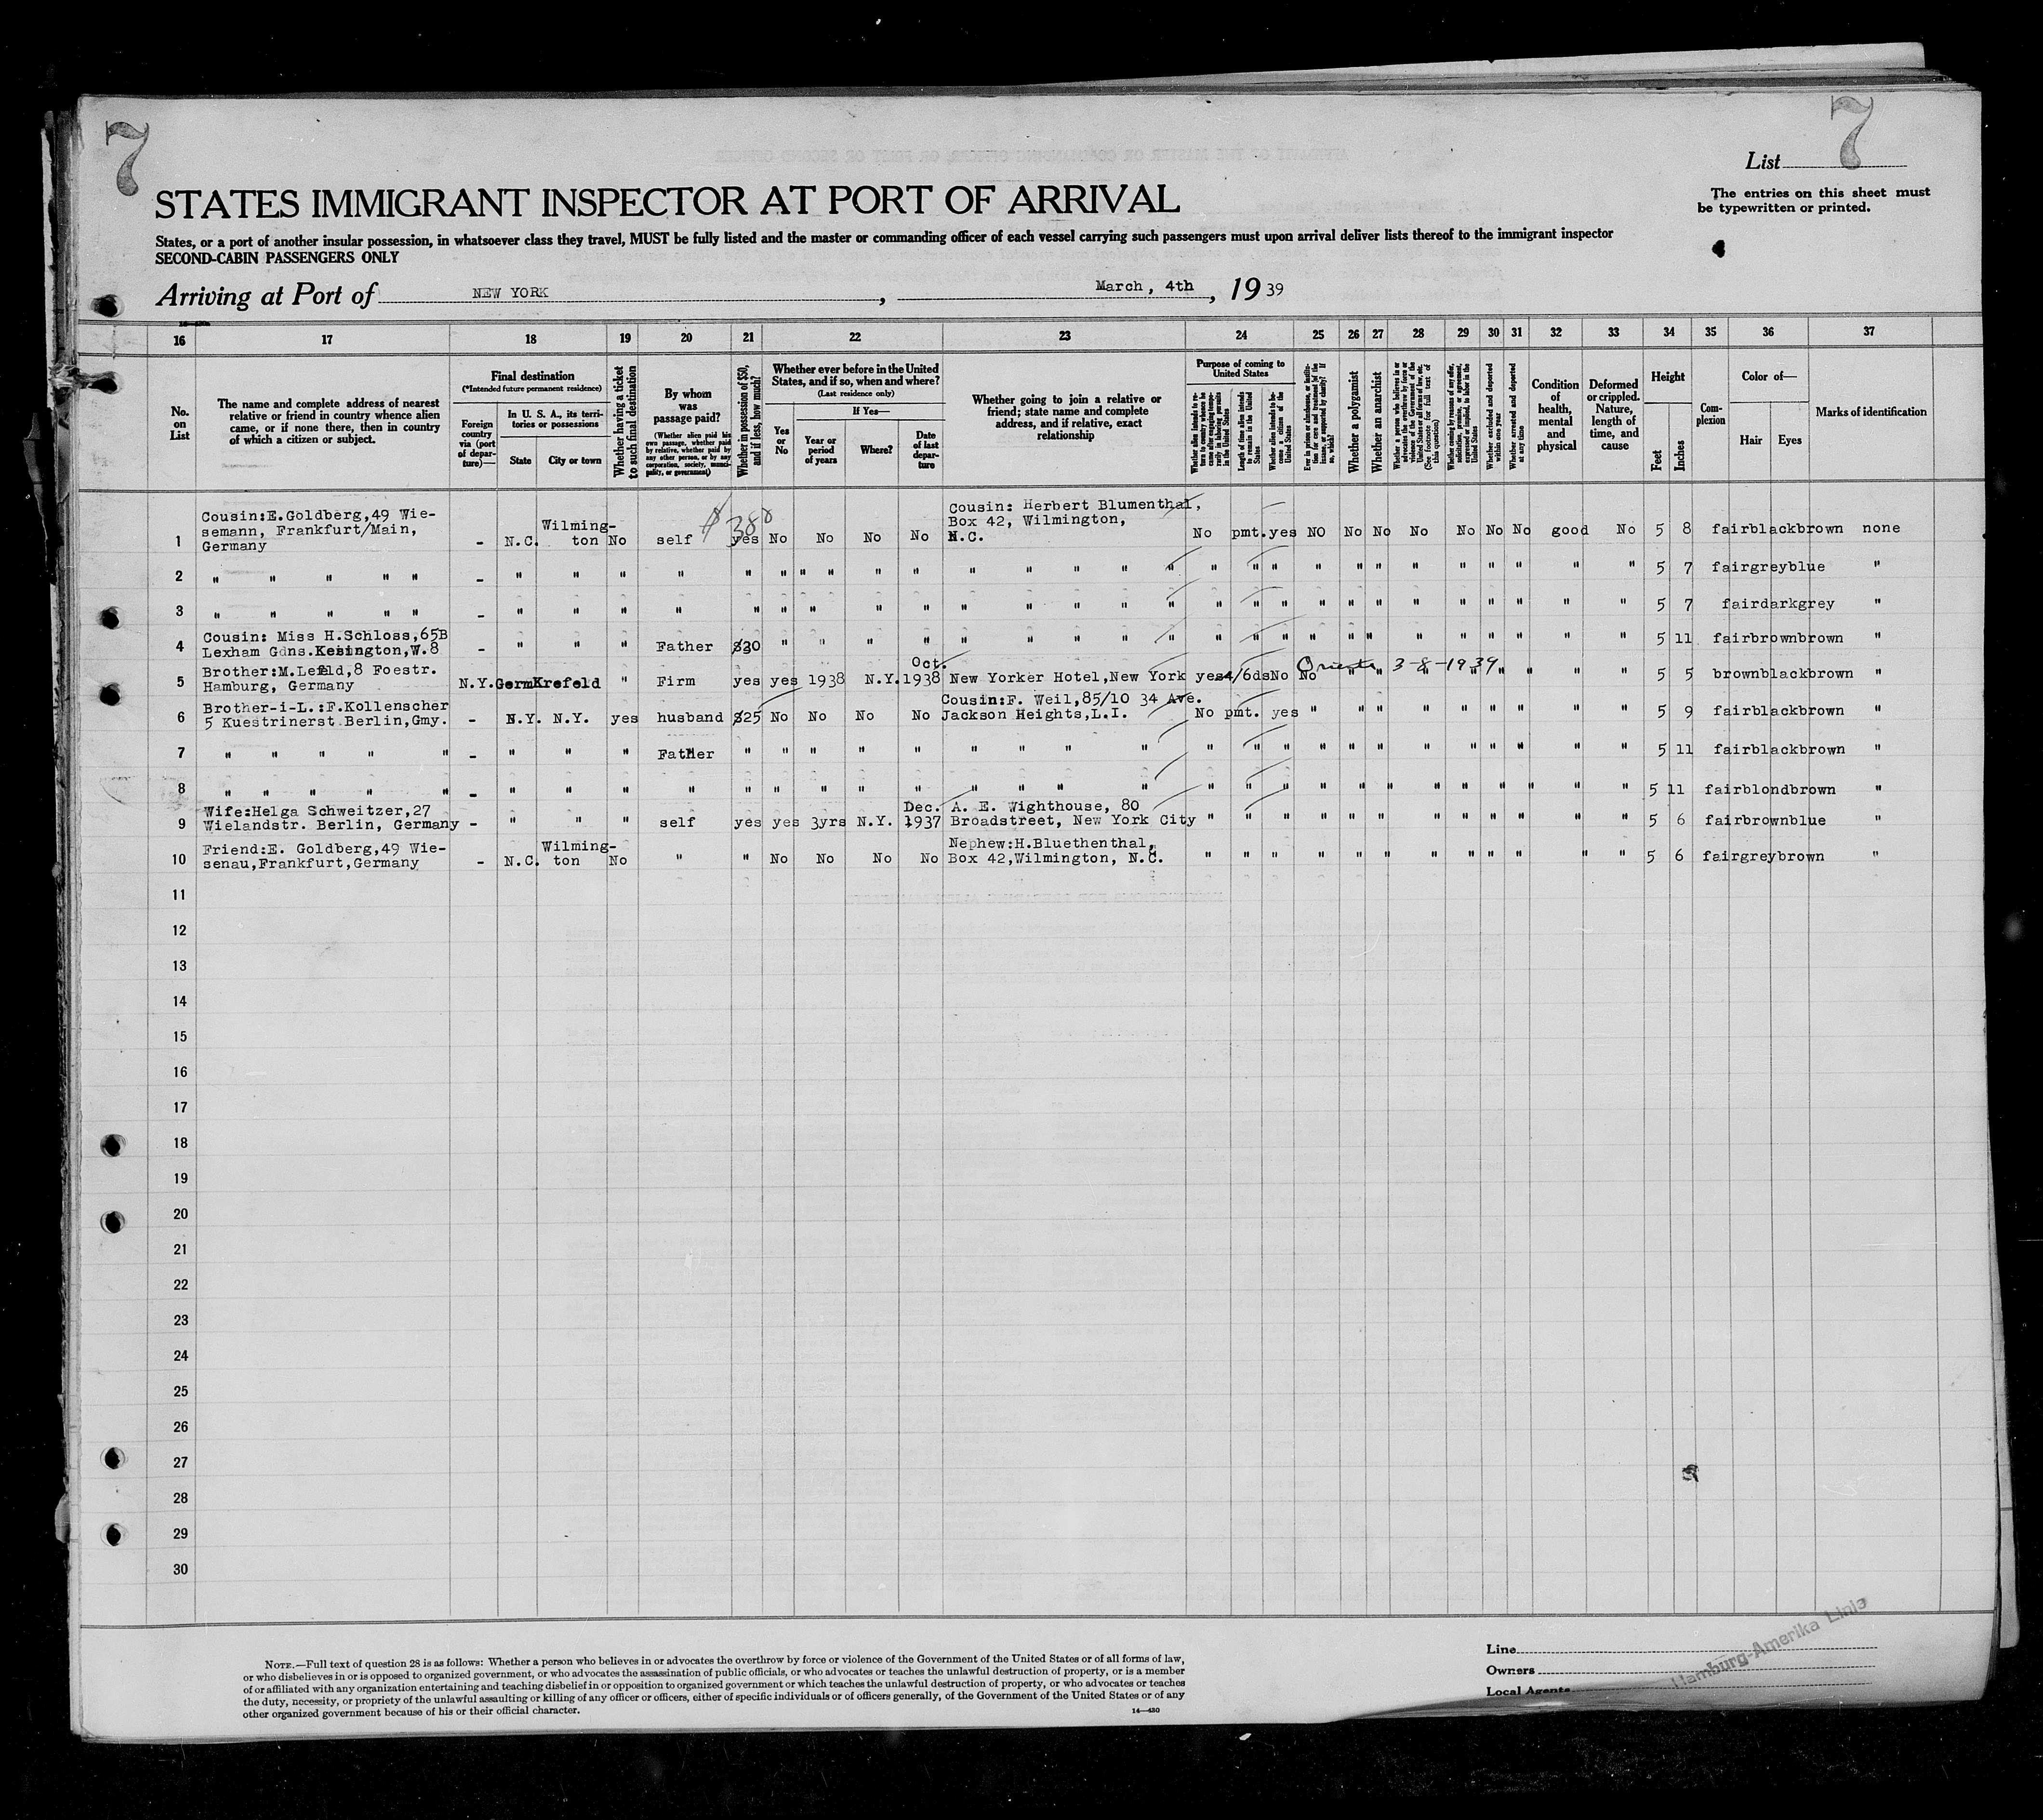 7
7
List
STATES IMMIGRANT INSPECTOR AT PORT OF ARRIVAL
The entries on this sheet must
be typewritten or printed.
States, or a port of another insular possession, in whatsoever class they travel, MUST be fully listed and the master or commanding officer of each vessel carrying such passengers must upon arrival deliver lists thereof to the immigrant inspector
SECOND-CABIN PASSENGERS ONLY
Arriving at Port of NEW YORK, March, 4th, 1939
16 17 18 19 20 21 22 23 24 25 26 27 28 29 30 31 32 33 34 35 36 37
No. on List
The name and complete address of nearest
relative or friend in country whence alien
came, or if none there, then in country
of which a citizen or subject.
Final destination
(*Intended future permanent residence)
Foreign country via (port of departure)—
In U. S. A., its territories or possessions
State
City or town
Whether having a ticket to such final destination
By whom was passage paid?
(Whether alien paid his own passage, whether paid by relative, whether paid by any other person, or by any corporation, society, municipality, or government)
Whether in possession of $50, and if less, how much?
Whether ever before in the United States, and if so, when and where?
(Last residence only)
If Yes—
Yes or No
Year or period of years
Where?
Date of last departure
Whether going to join a relative or
friend; state name and complete
address, and if relative, exact
relationship
Purpose of coming to United States
Length of time alien intends to remain in the United States
Whether alien intends to become a citizen of the United States
Whether a polygamist
Whether an anarchist
Whether excluded and deported within one year
Whether arrested and deported at any time
Condition of health, mental and physical
Deformed or crippled. Nature, length of time, and cause
Height
Feet
Inches
Complexion
Color of—
Hair
Eyes
Marks of identification
1 Cousin:E.Goldberg,49 Wie-
semann, Frankfurt/Main,
Germany - N.C. Wilming-
ton No self $380 yes No No No No Cousin: Herbert Blumenthal,
Box 42, Wilmington,
N.C. No pmt. yes NO No No No No No No good No 5 8 fair black brown none
2 " " " " " - " " " " " " " " " " " " " " " " " " " " " " " " " " " 5 7 fair grey blue "
3 " " " " " - " " " " " " " " " " " " " " " " " " " " " " " " " " 5 7 fair dark grey "
4 Cousin: Miss H.Schloss,65B
Lexham Gdns.Kesington,W.8 - " " " Father $30 " " " " " " " " " " " " " " " " " " " " " 5 11 fair brown brown "
5 Brother:M.Lefeld,8 Foestr.
Hamburg, Germany N.Y. Germ Krefeld " Firm yes yes 1938 N.Y. Oct.
1938 New Yorker Hotel,New York yes 4/6ds No No 3-8-1939 " " " " " " " " 5 5 brown black brown "
6 Brother-i-L.:F.Kollenscher
5 Kuestrinerst.Berlin,Gmy. - N.Y. N.Y. yes husband $25 No No No No Cousin:F. Weil,85/10 34 Ave.
Jackson Heights,L.I. No pmt. yes " " " " " " " " " 5 9 fair black brown "
7 " " " " " - " " " Father " " " " " " " " " " " " " " " " " " " " " 5 11 fair black brown "
8 " " " " " - " " " " " " " " " " " " " " " " " " " " " " " " " 5 11 fair blond brown "
9 Wife:Helga Schweitzer,27
Wielandstr. Berlin, Germany - " " " self yes yes 3yrs N.Y. Dec.
1937 A. E. Wighthouse, 80
Broadstreet, New York City " " " " " " " " " " " " 5 6 fair brown blue "
10 Friend:E. Goldberg,49 Wie-
senau,Frankfurt,Germany - N.C. Wilming-
ton No " " No No No No Nephew:H.Bluethenthal,
Box 42,Wilmington, N.C. " " " " " " " " " " " " 5 6 fair grey brown "
11
12
13
14
15
16
17
18
19
20
21
22
23
24
25
26
27
28
29
30
NOTE.—Full text of question 28 is as follows: Whether a person who believes in or advocates the overthrow by force or violence of the Government of the United States or of all forms of law,
or who disbelieves in or is opposed to organized government, or who advocates the assassination of public officials, or who advocates or teaches the unlawful destruction of property, or is a member
of or affiliated with any organization entertaining and teaching disbelief in or opposition to organized government or which teaches the unlawful destruction of property, or who advocates or teaches
the duty, necessity, or propriety of the unlawful assaulting or killing of any officer or officers, either of specific individuals or of officers generally, of the Government of the United States or of any
other organized government because of his or their official character.
14—430
Line
Owners
Local Agents
Hamburg-Amerika Linie